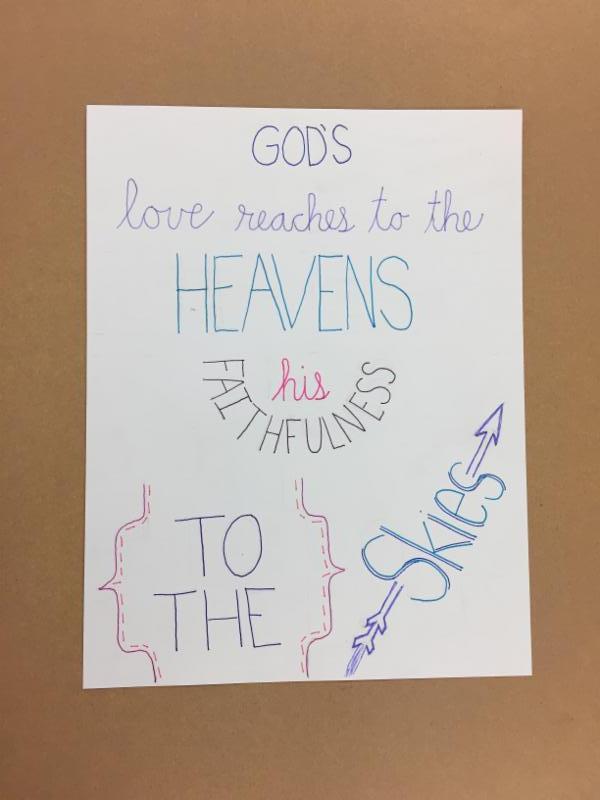 GOD'S
love reaches to the
HEAVENS
his
FAITHFULNESS
TO
THE
Skies